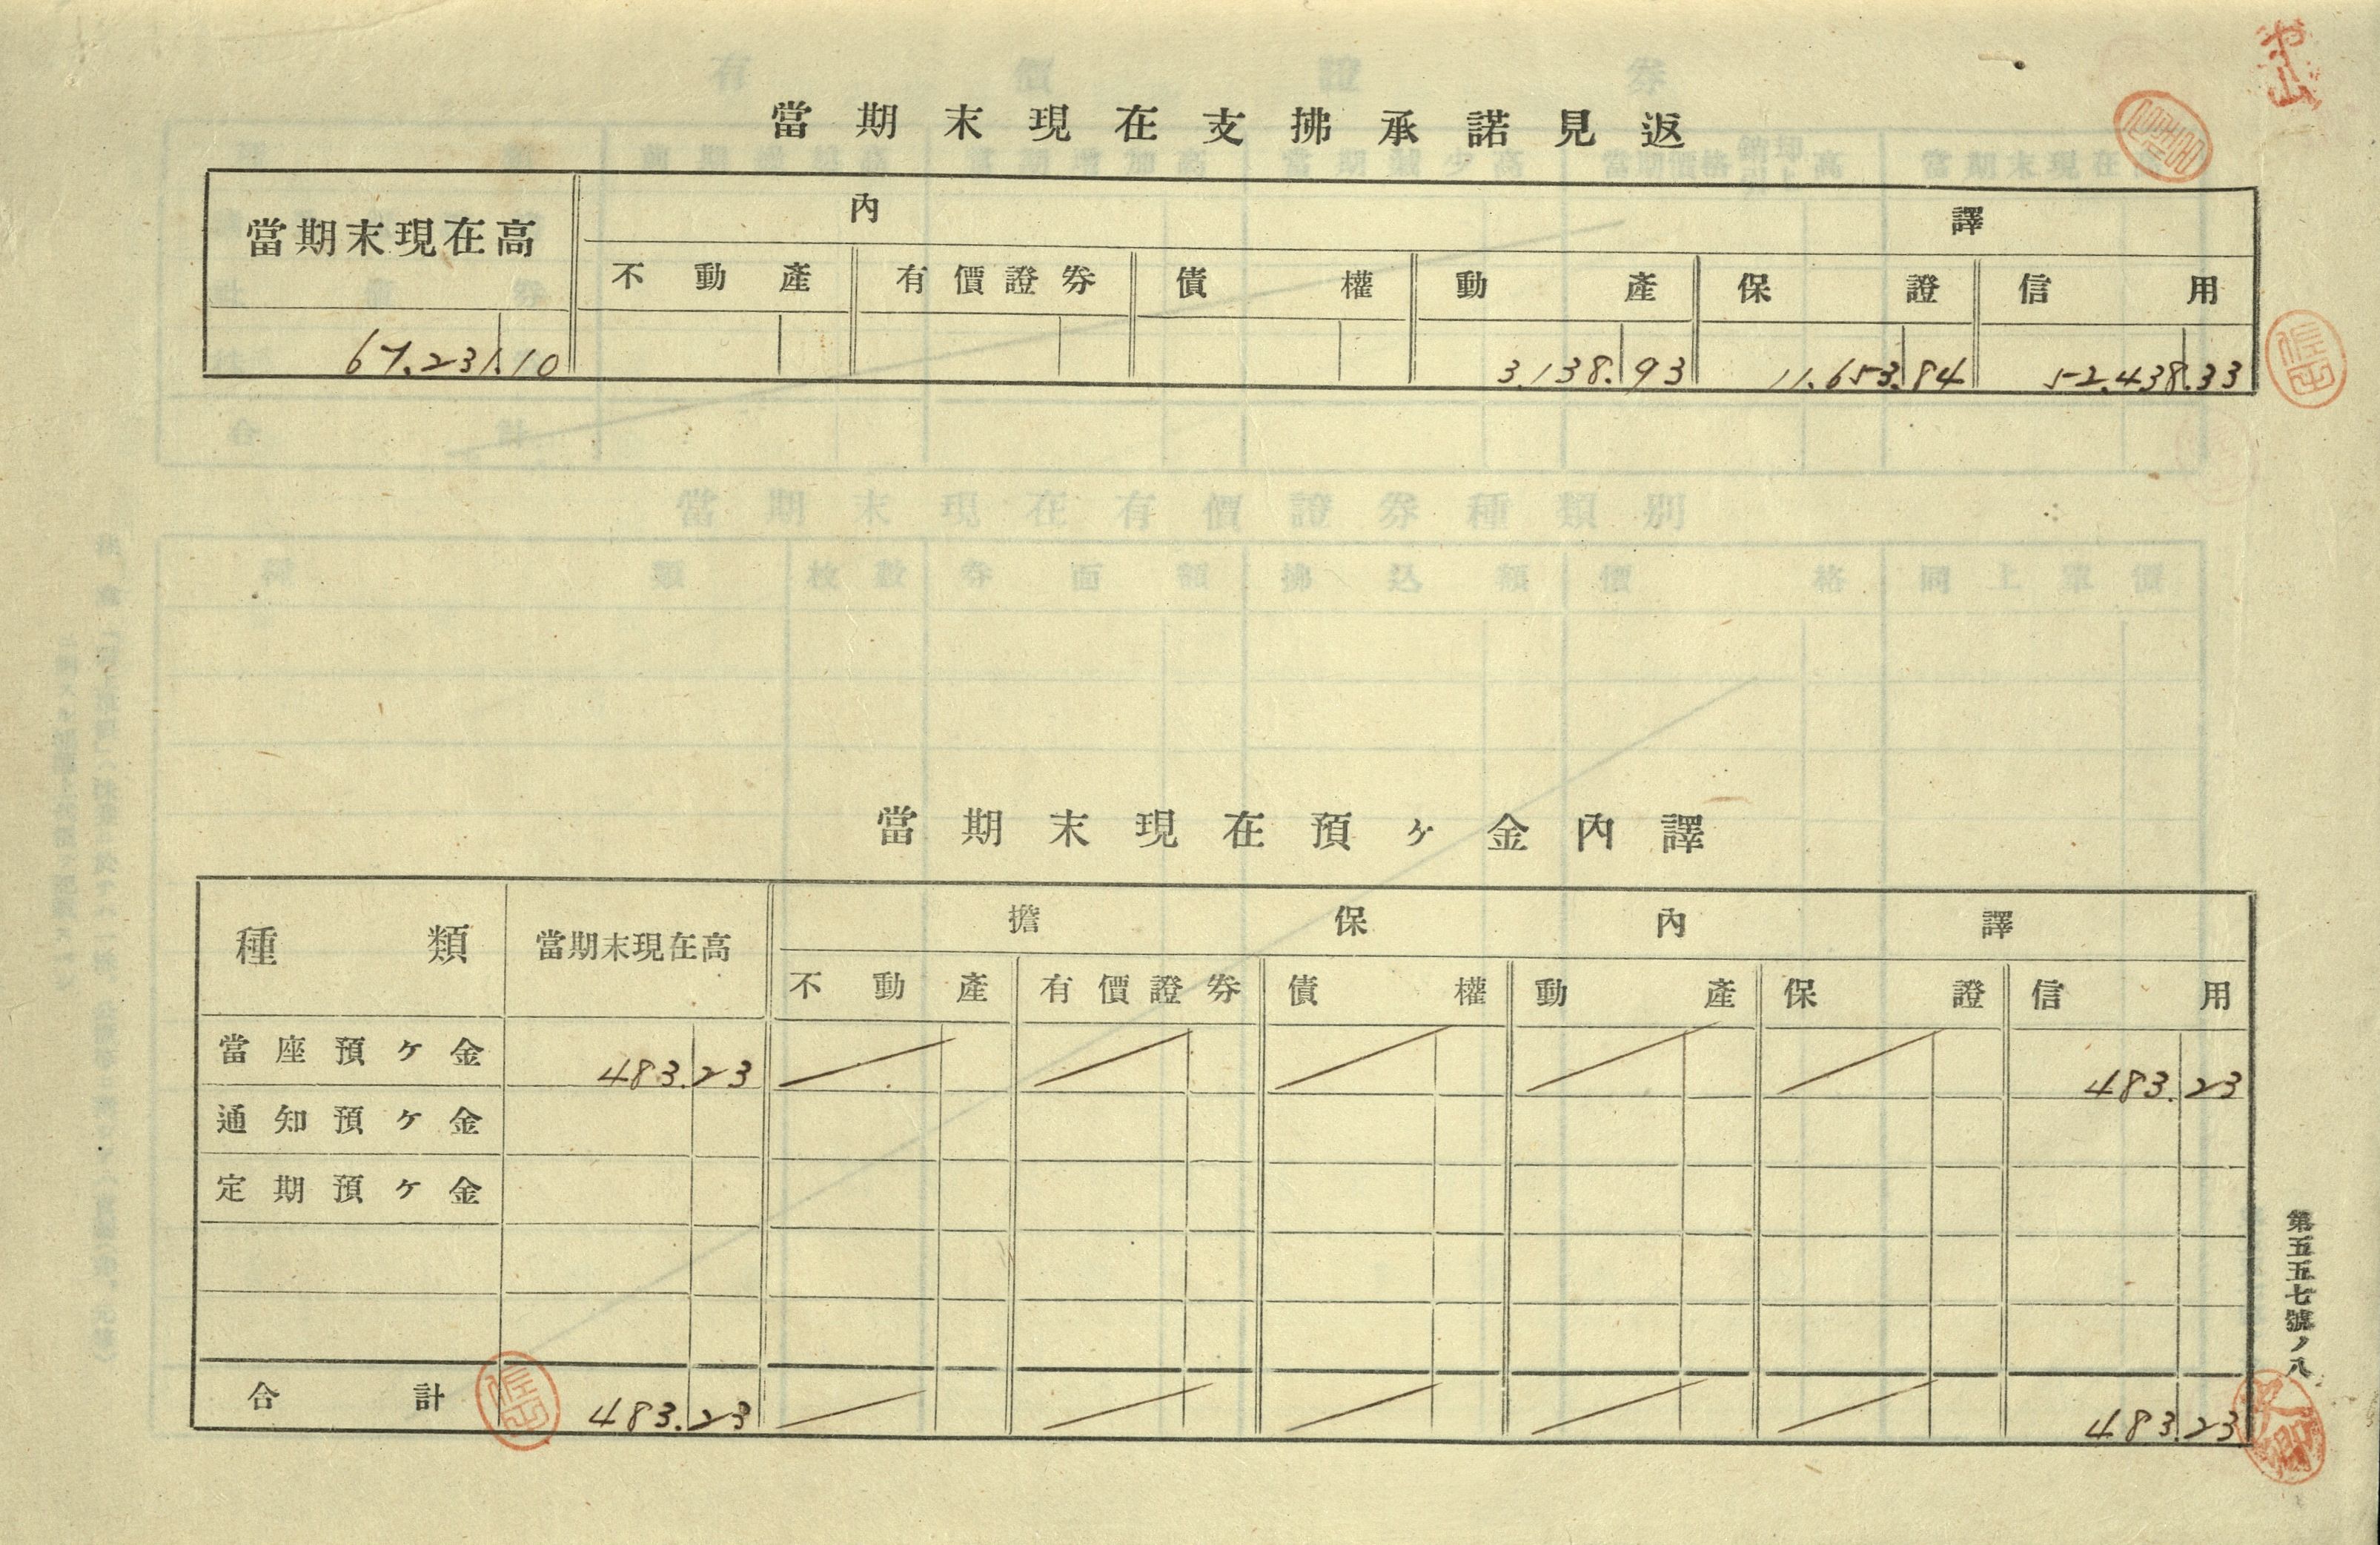 當期末現在支拂承諾見返
當期末現在高 內譯
不動產 有價證券 債權 動產 保證 信用
67.231.10 3.138.93 11.653.84 52.438.33
當期末現在預ヶ金內譯
種類 當期末現在高 擔保內譯
不動產 有價證券 債權 動產 保證 信用
當座預ヶ金 483.23 483.23
通知預ヶ金
定期預ヶ金
合計 483.23 483.23
第五五七號ノ八